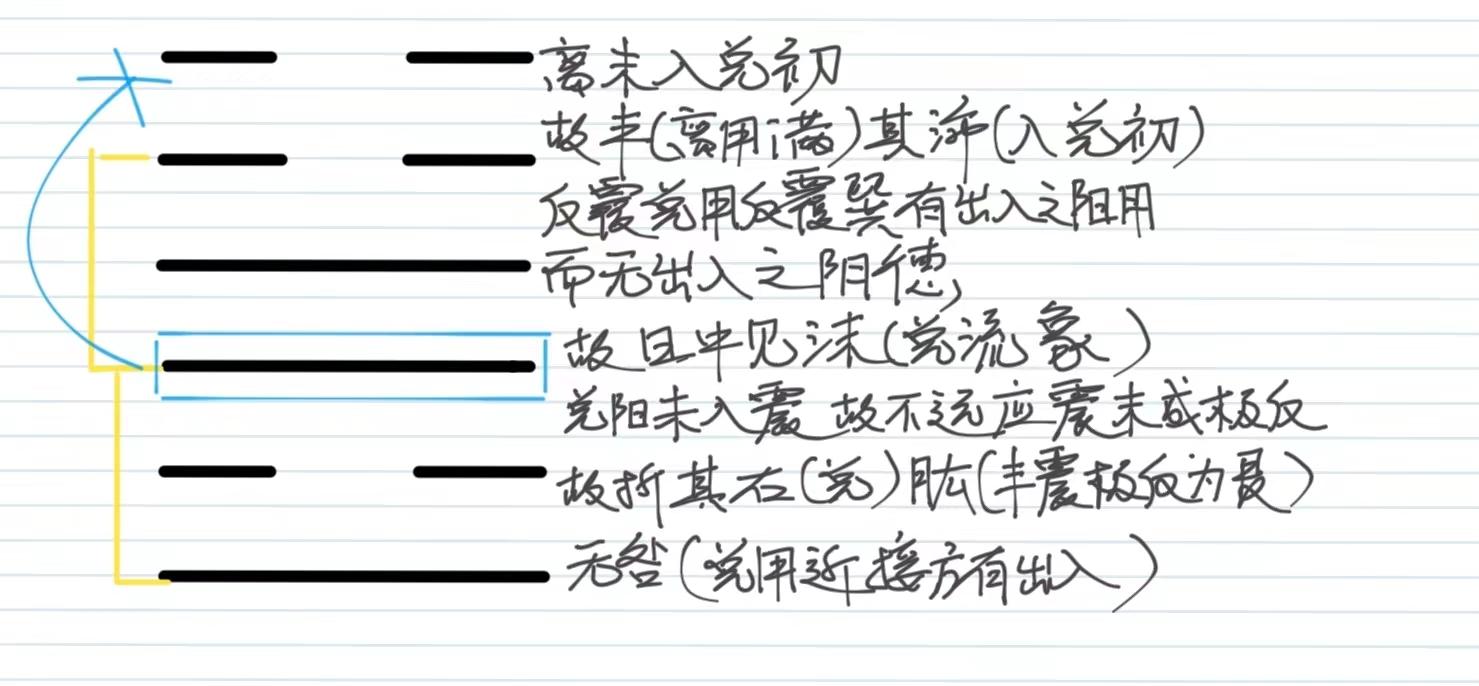 离末入兑初
故丰(离用满)其沛(入兑初)
反覆兑用反覆巽有出入之阳用
而无出入之阴德,
故日中见沫(兑流象)
兑阳未入震 故不远应震末或极反
故折其右(兑)肱(丰震极反为艮)
无咎(兑用近接方有出入)